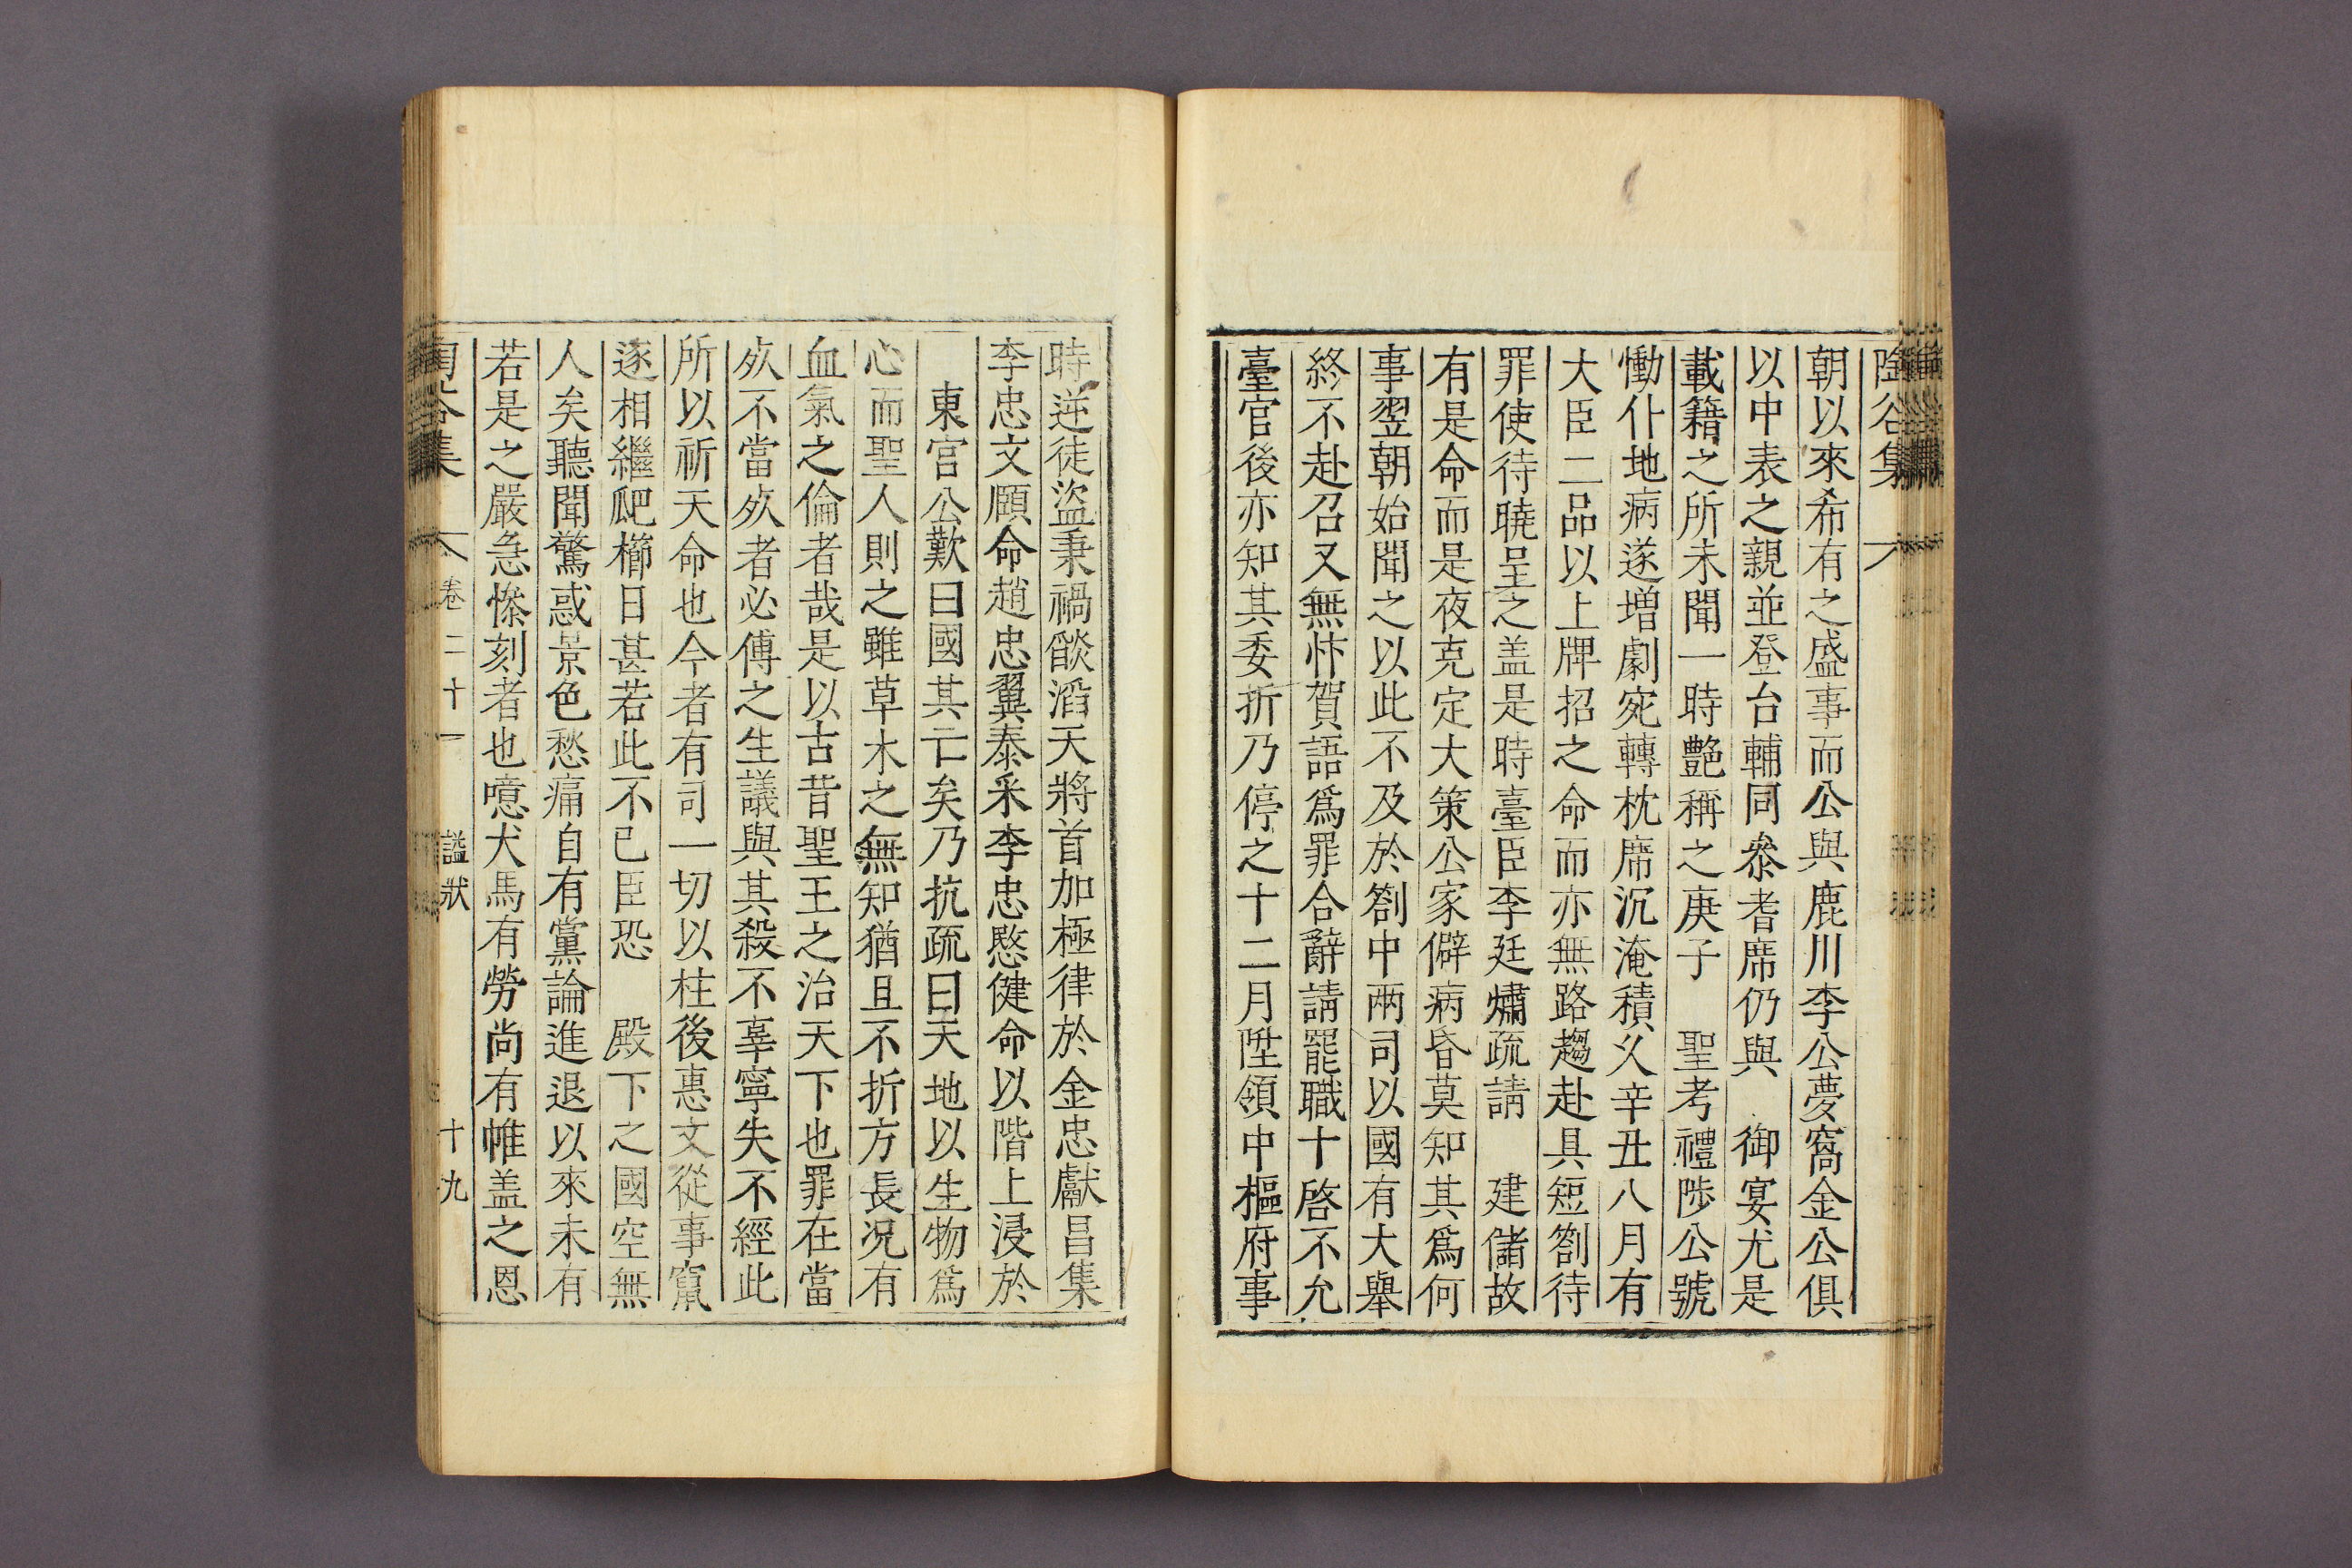 陶谷集
朝以來希有之盛事而公與鹿川李公夢窩金公俱
以中表之親並登台輔同叅耆席仍與　御宴尤是
載籍之所未聞一時艶稱之庚子　聖考禮陟公號
慟仆地病遂增劇宛轉枕席沉淹積久辛丑八月有
大臣二品以上牌招之命而亦無路趨赴具短劄待
罪使待曉呈之盖是時臺臣李廷熽疏請　建儲故
有是命而是夜克定大策公家僻病昏莫知其爲何
事翌朝始聞之以此不及於劄中兩司以國有大舉
終不赴召又無忭賀語爲罪合辭請罷職十啓不允
臺官後亦知其委折乃停之十二月陞領中樞府事
時逆徒盜秉禍燄滔天將首加極律於金忠獻昌集
李忠文頤命趙忠翼泰釆李忠愍健命以階上浸於
東宮公歎曰國其亡矣乃抗疏曰天地以生物爲
心而聖人則之雖草木之無知猶且不折方長况有
血氣之倫者哉是以古昔聖王之治天下也罪在當
㱡不當㱡者必傅之生議與其殺不辜寧失不經此
所以祈天命也今者有司一切以柱後惠文從事竄
逐相繼爬櫛日甚若此不已臣恐　殿下之國空無
人矣聽聞驚惑景色愁痛自有黨論進退以來未有
若是之嚴急慘刻者也噫犬馬有勞尚有帷盖之恩
陶谷集　卷二十一　謚狀　十九